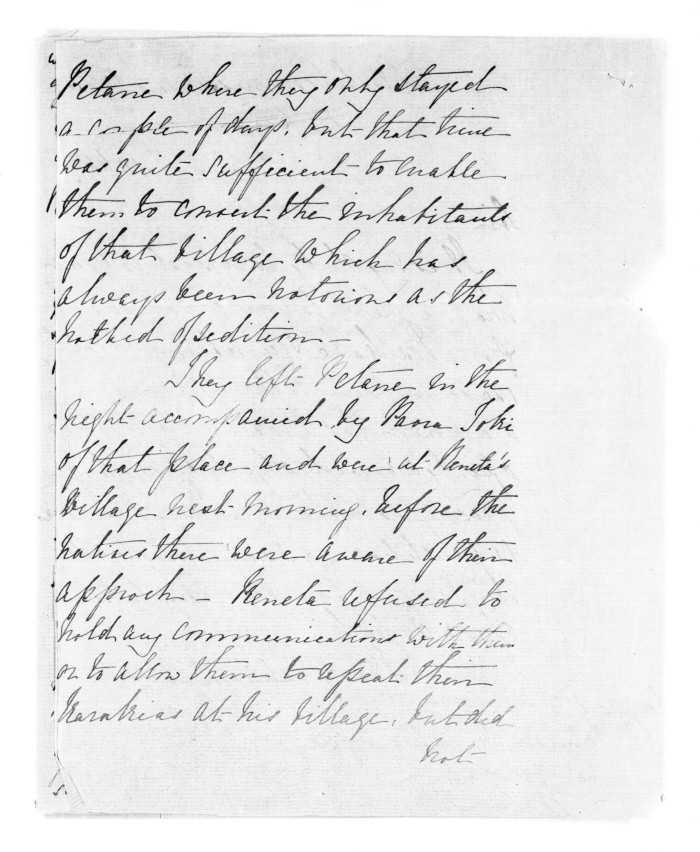 Petane where they only stayed
a couple of days. but that time
was quite sufficient to enable
them to convert the inhabitants
of that village which has
always been notorious as the
hotbed of sedition —
They left Petane in the
night accompanied by Paora Toki
of that place and were at Reneta's
village next morning. before the
natives there were aware of their
approch — Reneta refused to
hold any communications with them
or to allow them to repeat their
Karakias at his village. but did
not